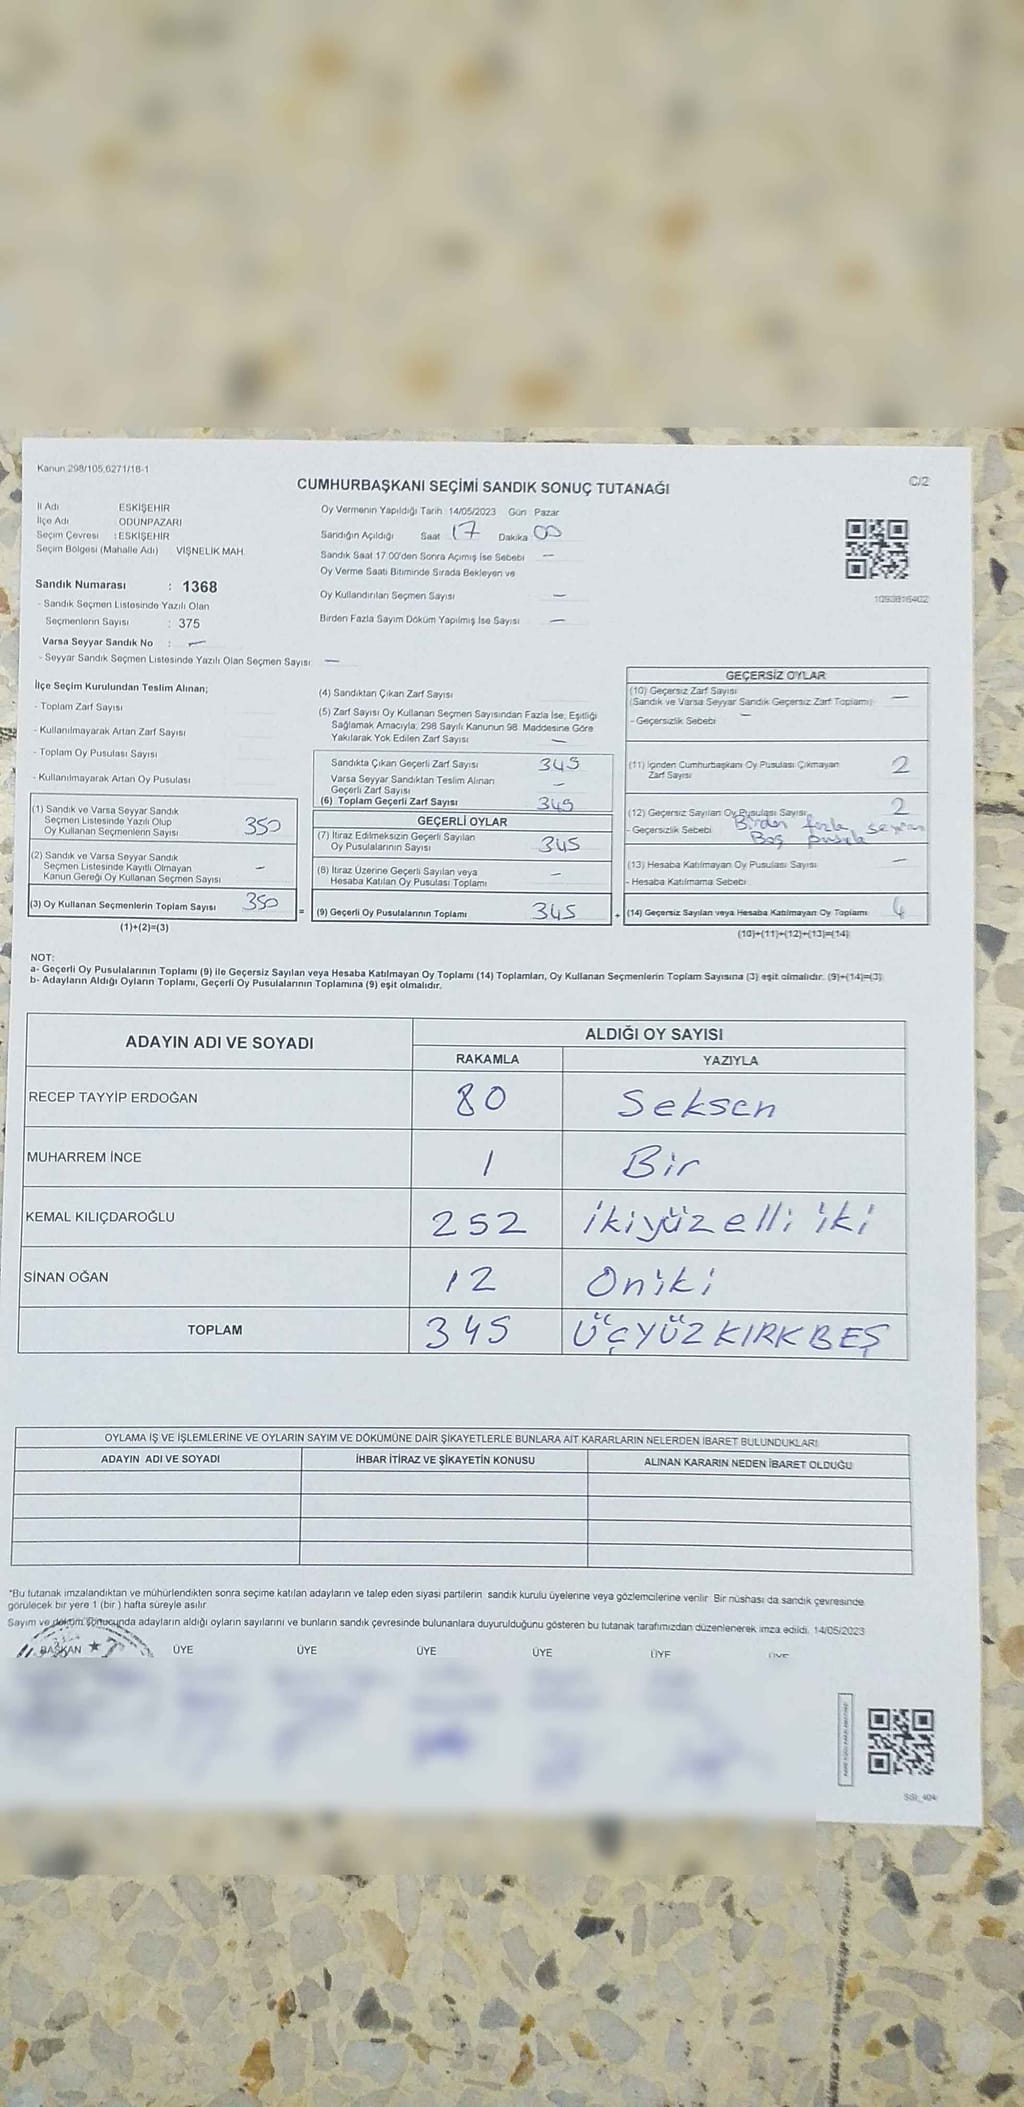 Kanun 298/105,6271/18-1
C/2
CUMHURBAŞKANI SEÇİMİ SANDIK SONUÇ TUTANAĞI
İl Adı ESKİŞEHİR
İlçe Adı ODUNPAZARI
Seçim Çevresi : ESKİŞEHİR
Seçim Bölgesi (Mahalle Adı) VİŞNELİK MAH.
Sandık Numarası : 1368
- Sandık Seçmen Listesinde Yazılı Olan
Seçmenlerin Sayısı : 375
Varsa Seyyar Sandık No : —
- Seyyar Sandık Seçmen Listesinde Yazılı Olan Seçmen Sayısı —
Oy Vermenin Yapıldığı Tarih 14/05/2023 Gün : Pazar
Sandığın Açıldığı Saat 17 Dakika 00
Sandık Saat 17 00'den Sonra Açımış İse Sebebi —
Oy Verme Saati Bitiminde Sırada Bekleyen ve
Oy Kullandırılan Seçmen Sayısı —
Birden Fazla Sayım Döküm Yapılmış İse Sayısı —
1093816402
İlçe Seçim Kurulundan Teslim Alınan;
- Toplam Zarf Sayısı
- Kullanılmayarak Artan Zarf Sayısı
- Toplam Oy Pusulası Sayısı
- Kullanılmayarak Artan Oy Pusulası
(1) Sandık ve Varsa Seyyar Sandık
Seçmen Listesinde Yazılı Olup
Oy Kullanan Seçmenlerin Sayısı 350
(2) Sandık ve Varsa Seyyar Sandık
Seçmen Listesinde Kayıtlı Olmayan
Kanun Gereği Oy Kullanan Seçmen Sayısı —
(3) Oy Kullanan Seçmenlerin Toplam Sayısı 350
(1)+(2)=(3)
(4) Sandıktan Çıkan Zarf Sayısı
(5) Zarf Sayısı Oy Kullanan Seçmen Sayısından Fazla İse, Eşitliği
Sağlamak Amacıyla; 298 Sayılı Kanunun 98. Maddesine Göre
Yakılarak Yok Edilen Zarf Sayısı —
Sandıkta Çıkan Geçerli Zarf Sayısı 345
Varsa Seyyar Sandıktan Teslim Alınan
Geçerli Zarf Sayısı —
(6) Toplam Geçerli Zarf Sayısı 345
GEÇERLİ OYLAR
(7) İtiraz Edilmeksizin Geçerli Sayılan
Oy Pusulalarının Sayısı 345
(8) İtiraz Üzerine Geçerli Sayılan veya
Hesaba Katılan Oy Pusulası Toplamı —
= (9) Geçerli Oy Pusulalarının Toplamı 345
GEÇERSİZ OYLAR
(10) Geçersiz Zarf Sayısı
(Sandık ve Varsa Seyyar Sandık Geçersiz Zarf Toplamı) —
- Geçersizlik Sebebi —
(11) İçinden Cumhurbaşkanı Oy Pusulası Çıkmayan
Zarf Sayısı 2
(12) Geçersiz Sayılan Oy Pusulası Sayısı 2
- Geçersizlik Sebebi Birden fazla seçilen
Boş pusula
(13) Hesaba Katılmayan Oy Pusulası Sayısı —
- Hesaba Katılmama Sebebi
+ (14) Geçersiz Sayılan veya Hesaba Katılmayan Oy Toplamı 4
(10)+(11)+(12)+(13)=(14)
NOT:
a- Geçerli Oy Pusulalarının Toplamı (9) ile Geçersiz Sayılan veya Hesaba Katılmayan Oy Toplamı (14) Toplamları, Oy Kullanan Seçmenlerin Toplam Sayısına (3) eşit olmalıdır. (9)+(14)=(3)
b- Adayların Aldığı Oyların Toplamı, Geçerli Oy Pusulalarının Toplamına (9) eşit olmalıdır.
ADAYIN ADI VE SOYADI ALDIĞI OY SAYISI
RAKAMLA YAZIYLA
RECEP TAYYİP ERDOĞAN 80 Seksen
MUHARREM İNCE 1 Bir
KEMAL KILIÇDAROĞLU 252 İkiyüz elli iki
SİNAN OĞAN 12 Oniki
TOPLAM 345 ÜÇYÜZ KIRK BEŞ
OYLAMA İŞ VE İŞLEMLERİNE VE OYLARIN SAYIM VE DÖKÜMÜNE DAİR ŞİKAYETLERLE BUNLARA AİT KARARLARIN NELERDEN İBARET BULUNDUKLARI
ADAYIN ADI VE SOYADI İHBAR İTİRAZ VE ŞİKAYETİN KONUSU ALINAN KARARIN NEDEN İBARET OLDUĞU
*Bu tutanak imzalandıktan ve mühürlendikten sonra seçime katılan adayların ve talep eden siyasi partilerin sandık kurulu üyelerine veya gözlemcilerine verilir. Bir nüshası da sandık çevresinde
görülecek bir yere 1 (bir) hafta süreyle asılır.
Sayım ve döküm sonucunda adayların aldığı oyların sayılarını ve bunların sandık çevresinde bulunanlara duyurulduğunu gösteren bu tutanak tarafımızdan düzenlenerek imza edildi. 14/05/2023
BAŞKAN ÜYE ÜYE ÜYE ÜYE ÜYE ÜYE